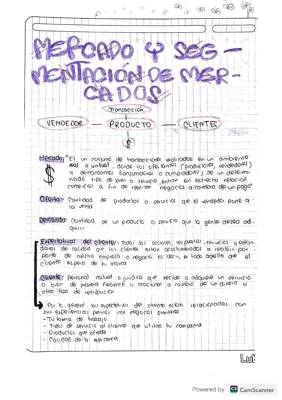 MERCADO Y SEG-
MENTACIÓN DE MER-
CADOS
TRANSACCIÓN
VENDEDOR — PRODUCTO — CLIENTES
$
Mercado: "Es un conjunto de transacciones realizadas en un ambiente
real o virtual, donde los oferentes (productores, vendedores)
y demandantes (consumidores o compradores) de un determinado
tipo de bien o servicio entran en estrecha relación
comercial a fin de realizar negocios a cantidad de un pago"
$
Oferta: Cantidad de productos o servicios que el vendedor pone a
la venta
Demanda: Cantidad de un producto o servicio que la gente desea
Expectativas del cliente: Todas las acciones, respuestas, servicios y
de calidad que los clientes están acostumbrados a recibir por
parte de nuestra empresa o negocio. Es decir, es todo aquello que el
cliente espera de tu marca
Cliente: persona natural o jurídica que recibe o adquiere un servicio
o bien de manera frecuente u ocasional a cambio de un dinero u
otro tipo de retribución
Por lo general, las expectativas del cliente están relacionadas con
sus experiencias previas con negocios similares
- Tu forma de trabajo
- Tipo de servicio al cliente que utiliza tu compañía
- Productos que ofrece
- Calidad de tu
Powered by CS CamScanner